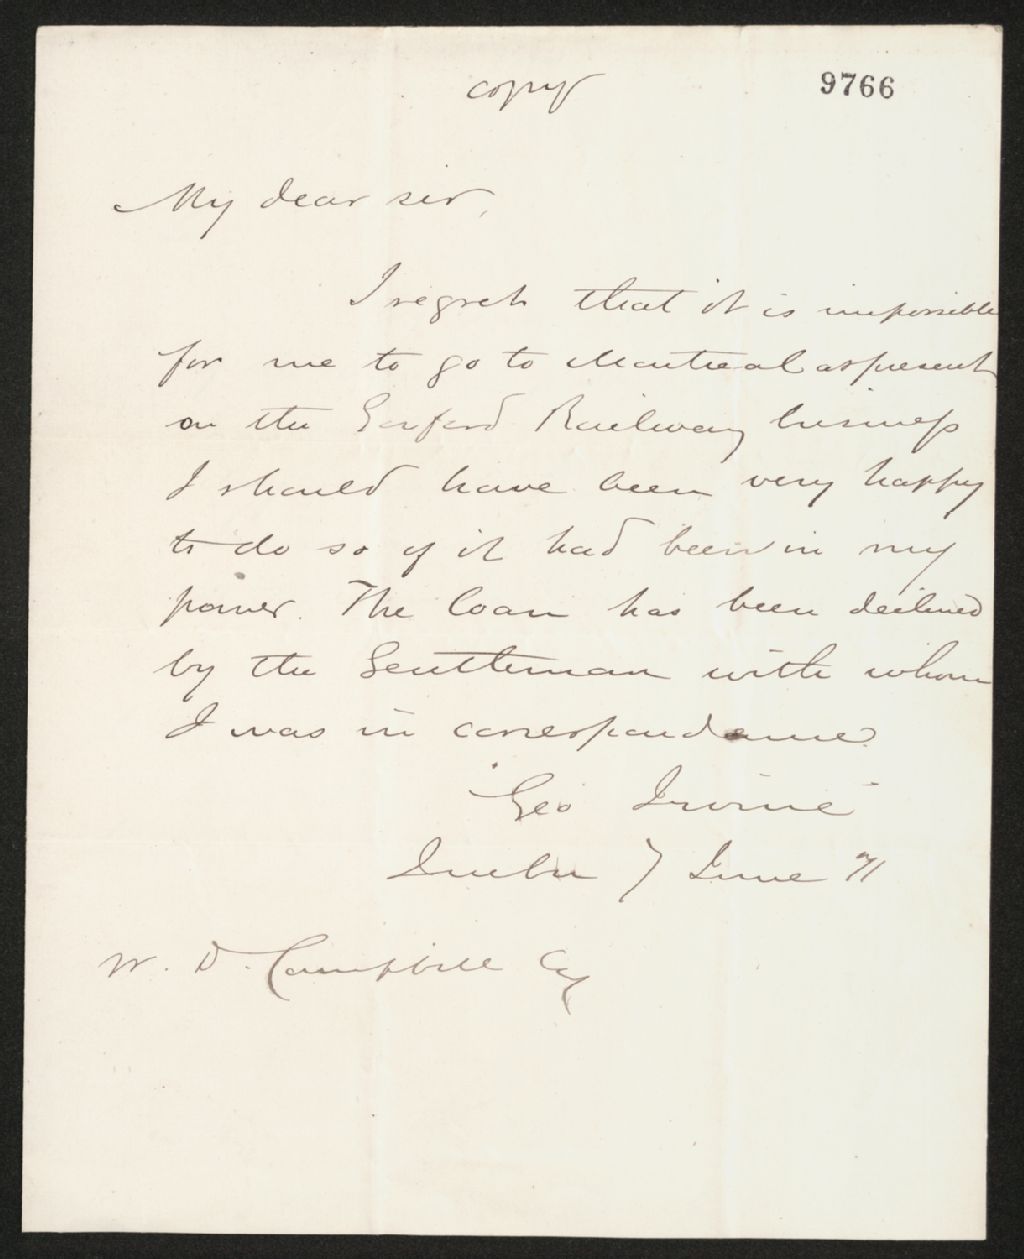 copy
9766
My dear sir,
I regret that it is impossible
for me to go to Montreal at present
on the Gosford Railway business
I should have been very happy
to do so if it had been in my
power. The loan has been declined
by the Gentleman with whom
I was in correspondence
"Geo Irvine"
Quebec 7 June 71
W. D. Campbell Esq